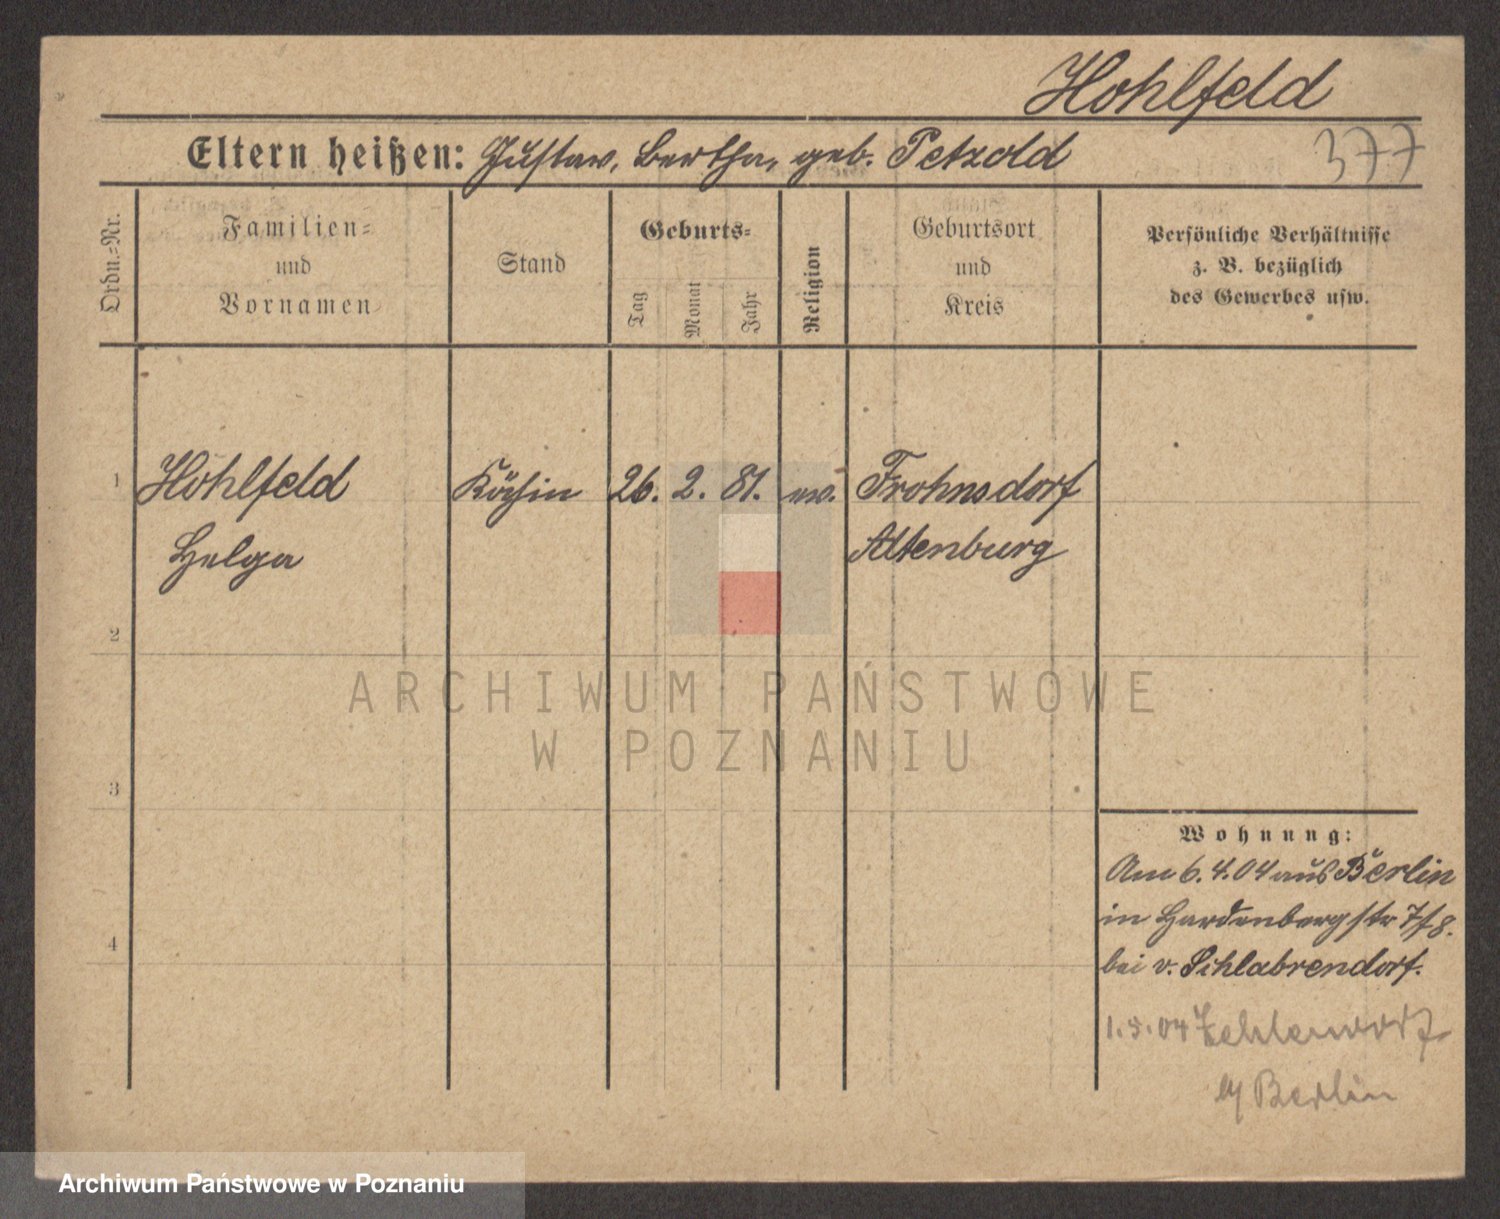 Hohlfeld
Eltern heißen: Gustav, Bertha, geb. Petzold
377
Ordn.-Nr.
Familien-
und
Vornamen
Stand
Geburts-
Tag
Monat
Jahr
Religion
Geburtsort
und
Kreis
Persönliche Verhältnisse
z. B. bezüglich
des Gewerbes usw.
1
Hohlfeld
Helga
Köchin
26. 2. 81.
ev.
Frohnsdorf
Altenburg
2
3
4
Wohnung:
Am 6.4.04 aus Berlin
in Hardenbergstr 7/8.
bei v. Schlabrendorf.
1.5.04 Zehlendorf
b/ Berlin
ARCHIWUM PAŃSTWOWE
W POZNANIU
Archiwum Państwowe w Poznaniu